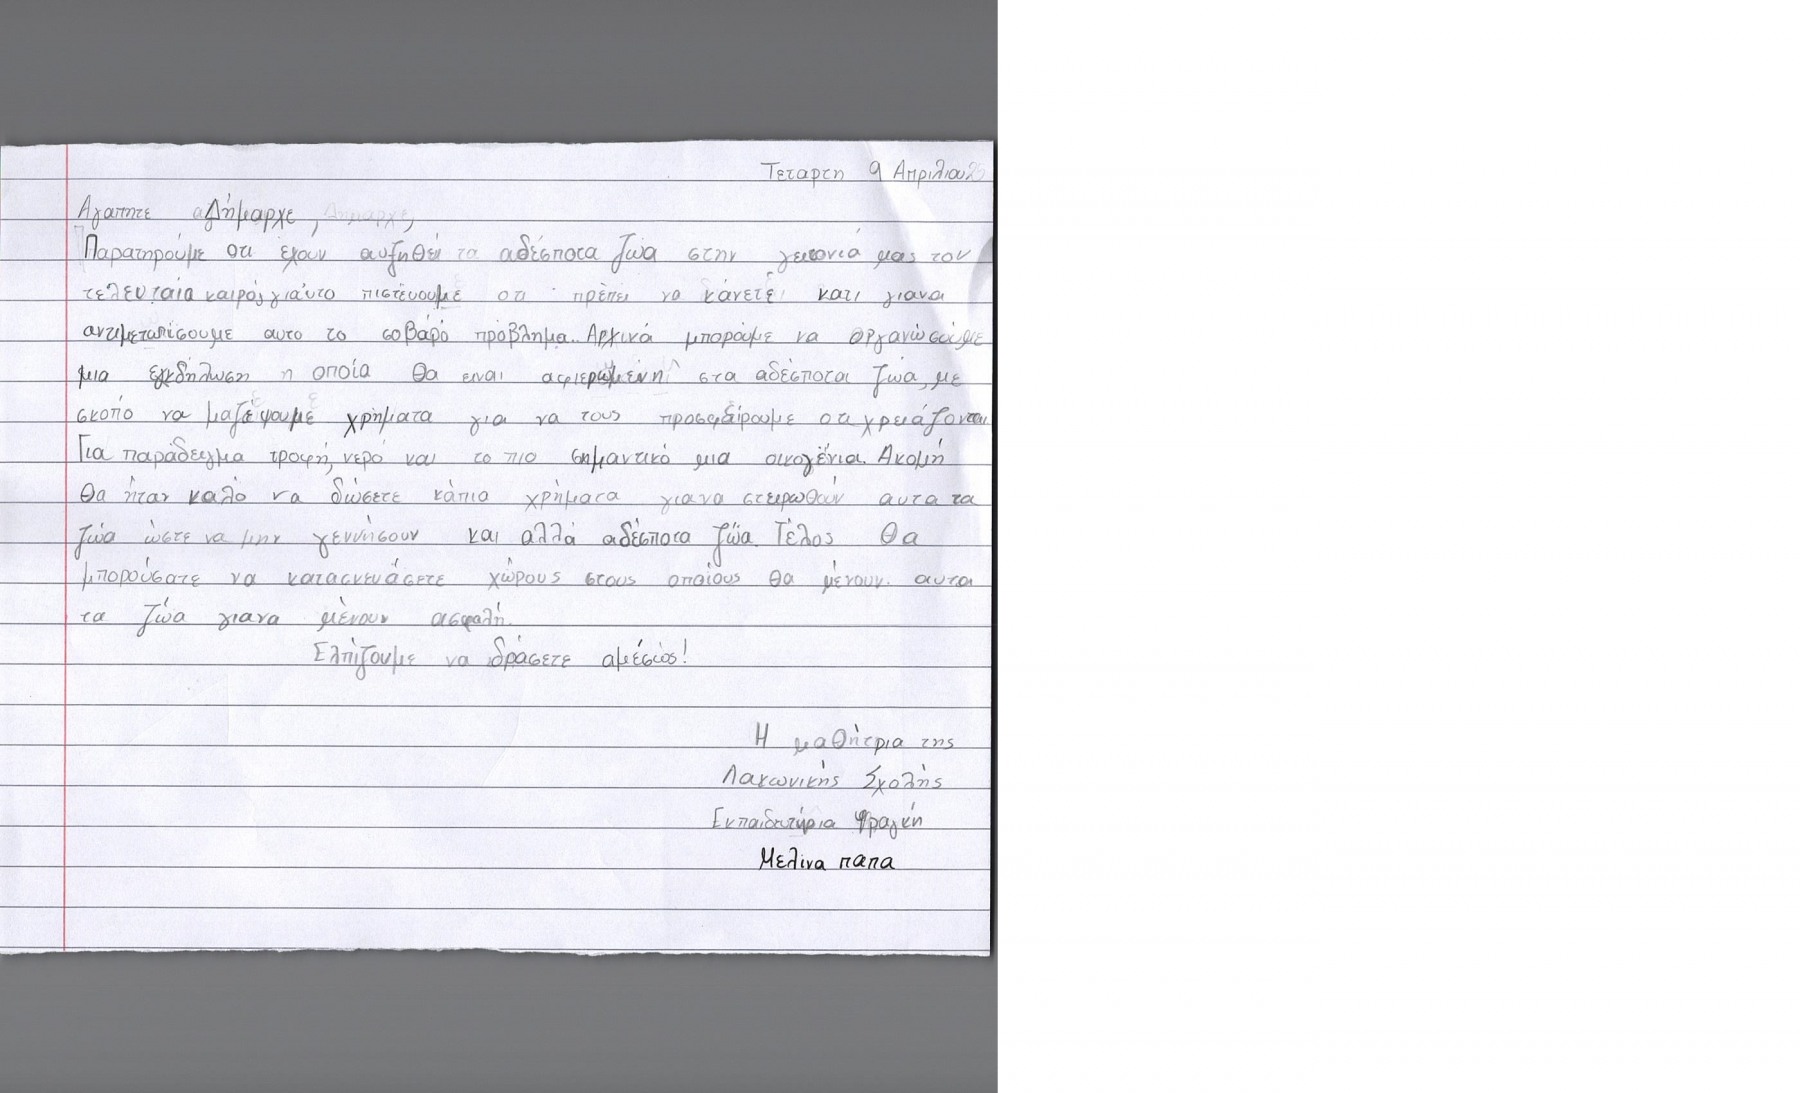 Τεταρτη 9 Απριλιου
Αγαπητε Δήμαρχε,
Παρατηρούμε οτι έχουν αυξηθεί τα αδέσποτα ζώα στην γειτονιά μας τον
τελευταία καιρό, γιαυτο πιστεύουμε οτι πρέπει να κάνετε κατι γιανα
αντιμετωπίσουμε αυτο το σοβαρό πρόβλημα. Αρχικά μπορούμε να οργανώσουμε
μια εκδήλωση η οποία θα ειναι αφιερωμένη στα αδέσποτα ζώα, με
σκοπό να μαζέψουμε χρήματα για να τους προσφέιρουμε οτι χρειάζονται
Για παράδειγμα τροφή, νερό και το πιο σημαντικό μια οικογένια. Ακομή
θα ήταν καλό να δώσετε κάπια χρήματα γιανα στειρωθούν αυτα τα
ζώα ώστε να μην γεννήσουν και αλλά αδέσποτα ζώα. Τέλος θα
μπορούσατε να κατασκευάσετε χώρους στους οποίους θα μένουν αυτα
τα ζώα γιανα μένουν ασφαλή.
Ελπίζουμε να δράσετε αμέσως!
Η μαθήτρια της
Λακωνικής Σχολής
Εκπαιδευτήρια Φραγκή
Μελινα παπα